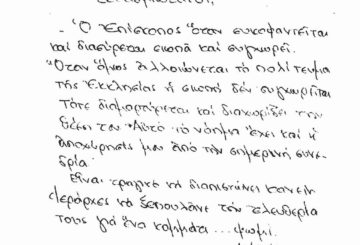 - Ὁ Ἐπίσκοπος ὅταν συκοφαντεῖται
καί διασύρεται σιωπᾶ καί συγχωρεῖ.
Ὅταν ὅμως ἀλλοιώνεται τό πολίτευμα
τῆς Ἐκκλησίας ἡ σιωπή δέν συγχωρεῖται
Τότε διαμαρτύρεται καί διαχωρίζει τήν
θέσι του. Αὐτό τό νόημα ἔχει καί ἡ
ἀποχώρησίς μου ἀπό τήν σημερινή συνε-
δρία.
Εἶναι τραγικό νά διαπιστώνει κανείς
Ἱεράρχες νά ξεπουλᾶνε τήν ἐλευθερία
τους γιά ἕνα κομμάτι ... ψωμί.